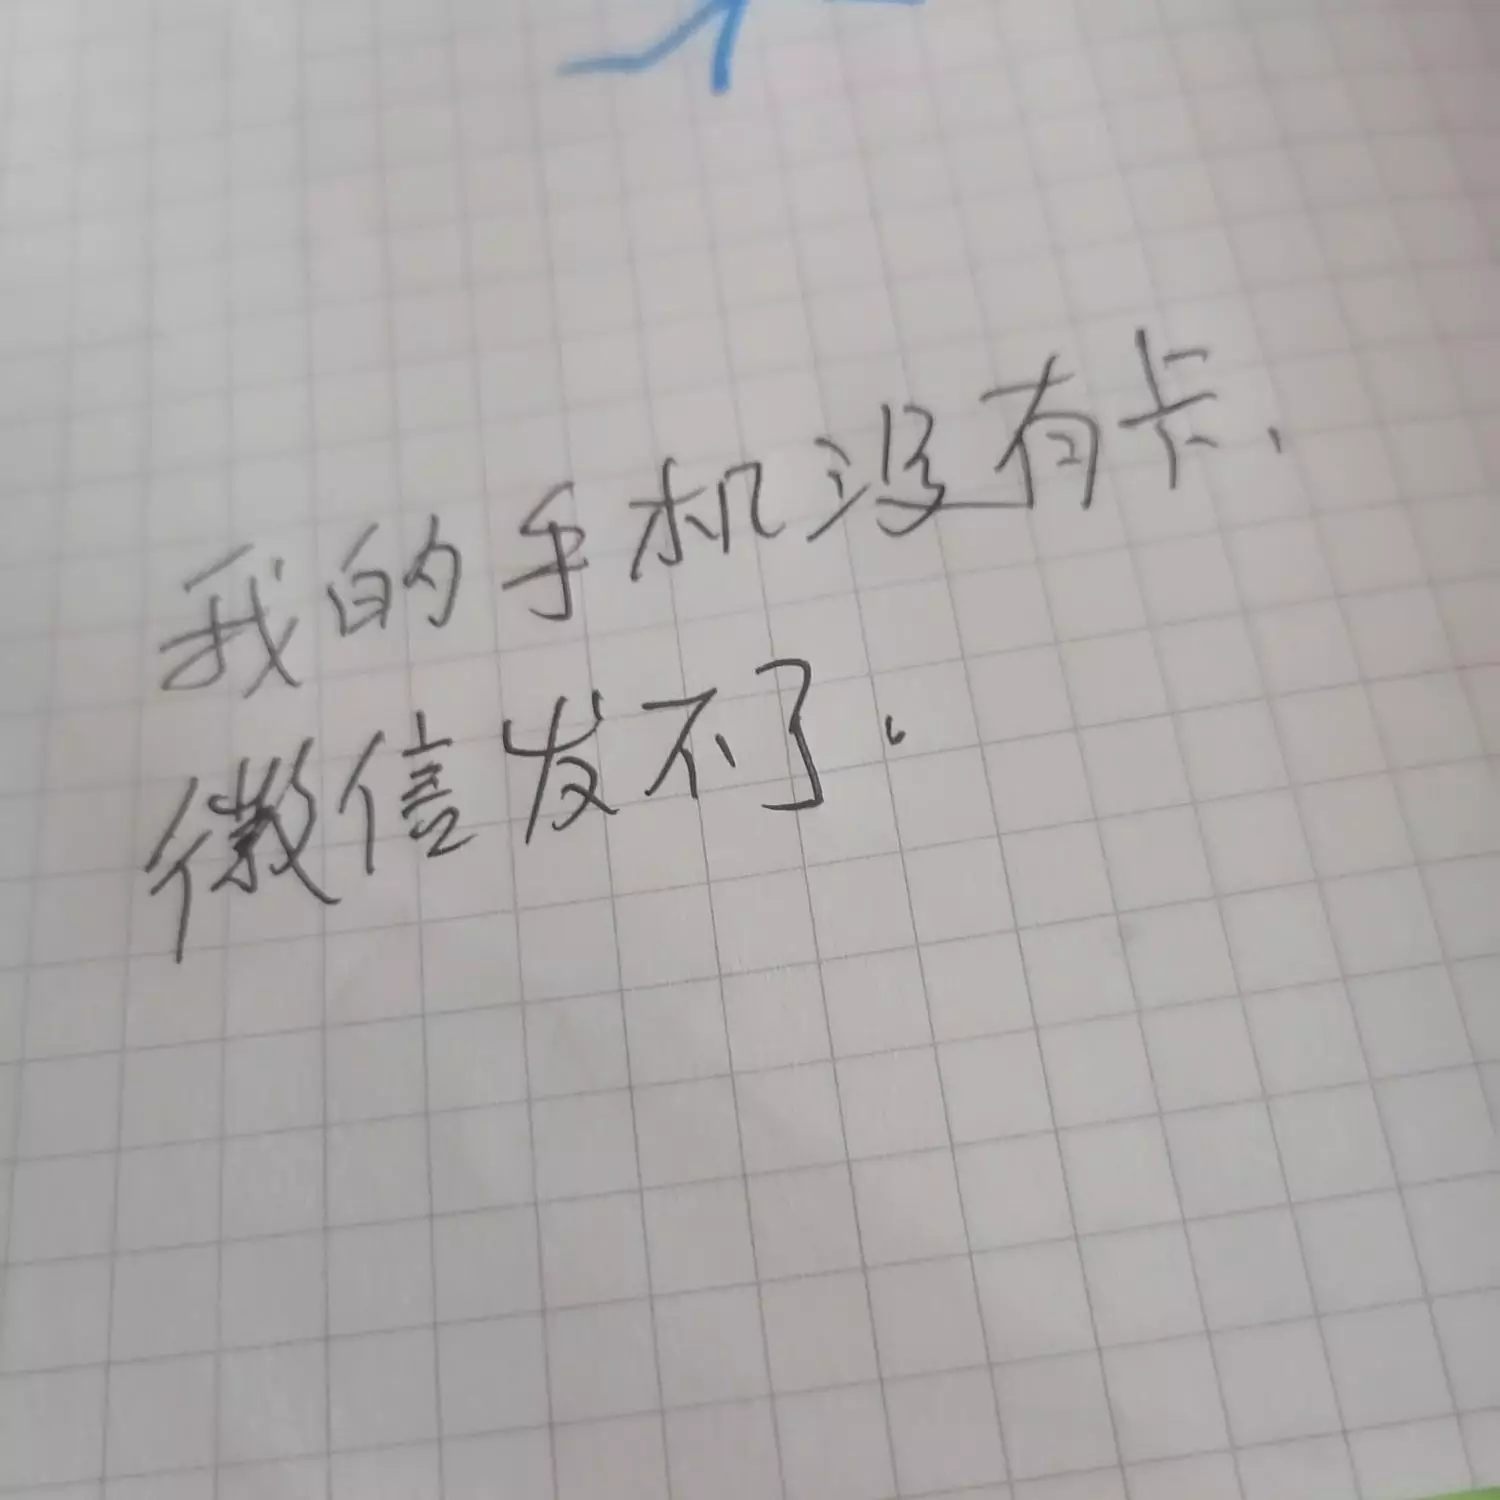 我的手机没有卡、
微信发不了.